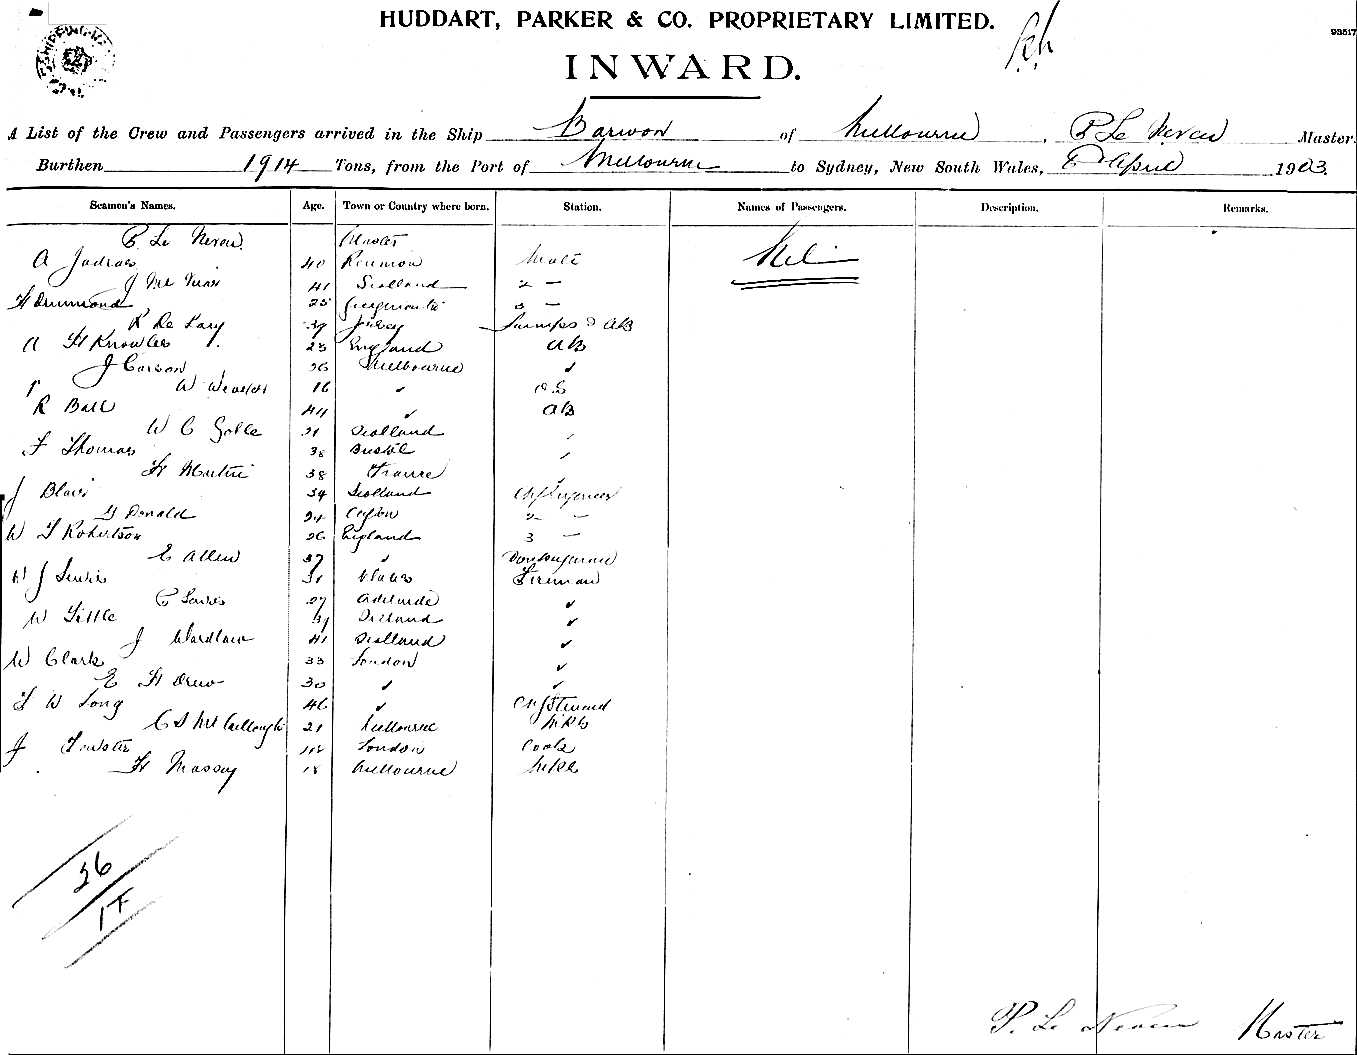 HUDDART, PARKER & CO. PROPRIETARY LIMITED.
93517
INWARD.
A List of the Crew and Passengers arrived in the Ship Barwon of Melbourne, P Le Neveu Master.
Burthen 1914 Tons, from the Port of Melbourne to Sydney, New South Wales, April 1903
Seamen's Names. Age. Town or Country where born. Station. Names of Passengers. Description. Remarks.
P Le Neveu Master Nil
A 40 Reunion Mate
J 41 Scotland 2 —
H Drummond 25 3 —
R De 39 Jersey Lamps & AB
A H Knowles 23 England AB
J Carson 26 Melbourne ✓
W 16 ✓ OS
R Ball 44 ✓ AB
W C 21 Scotland
F Thomas 38
H 38 France
J Blair 34 Scotland Ch Engineer
G Donald 24 Ceylon 2 —
W Robertson 26 England 3 —
E Allen 37 ✓
W J Lewis 31 Wales Fireman
C Lewis 27 Adelaide ✓
W Little 31 Ireland ✓
J Wardlaw 41 Scotland ✓
W Clark 33 London ✓
E H Drew 30 ✓ ✓
W Long 46 ✓ Ch Steward
C S McCullough 21 Melbourne
J London Cook
H Massey 18 Melbourne
26
1+
P. Le Neveu Master